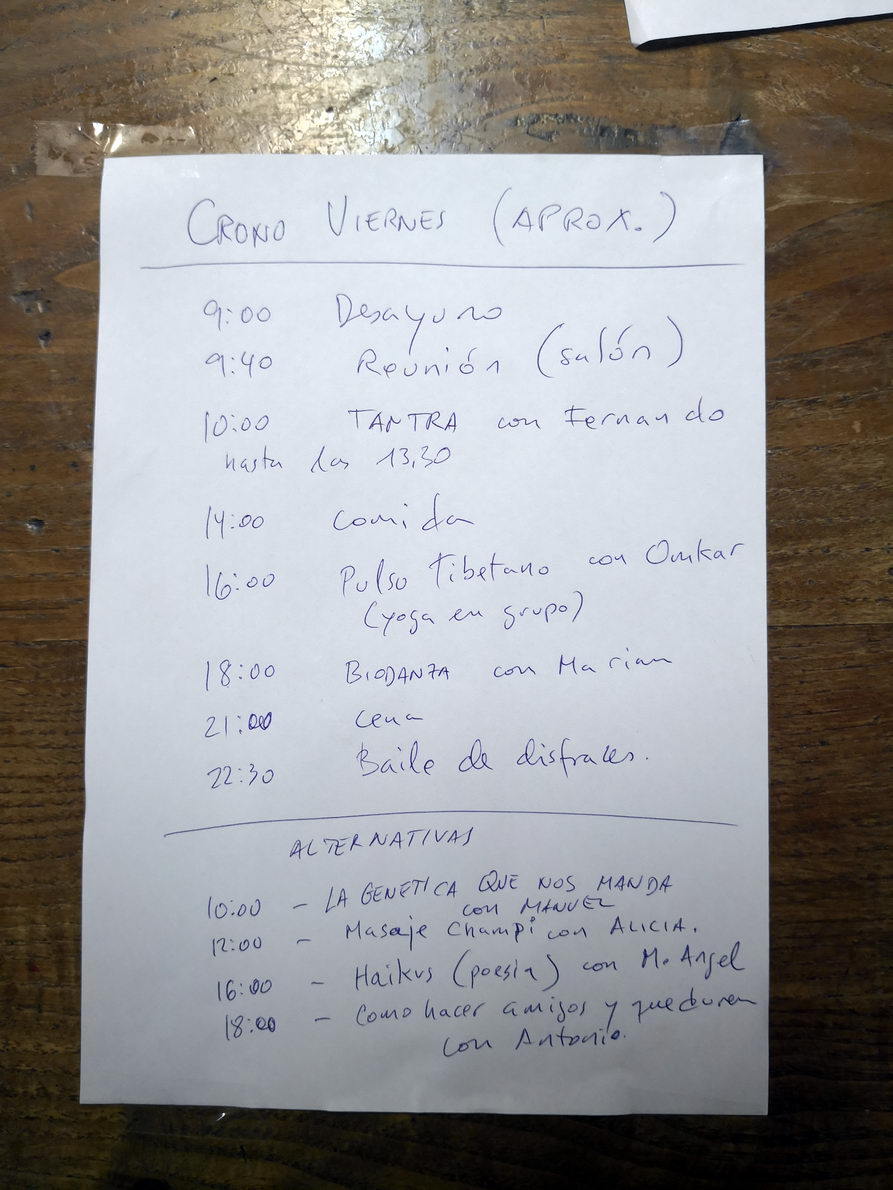 CRONO VIERNES (APROX.)
9:00 Desayuno
9:40 Reunión (salón)
10:00 TANTRA con Fernando
hasta las 13,30
14:00 Comida
16:00 Pulso Tibetano con Omkar
(yoga en grupo)
18:00 BIODANZA con Marian
21:00 cena
22:30 Baile de disfraces.
ALTERNATIVAS
10:00 - LA GENETICA QUE NOS MANDA
con MANUEL
12:00 - Masaje Champi con ALICIA.
16:00 - Haikus (poesia) con M. Angel
18:00 - Como hacer amigos y que duren
con Antonio.